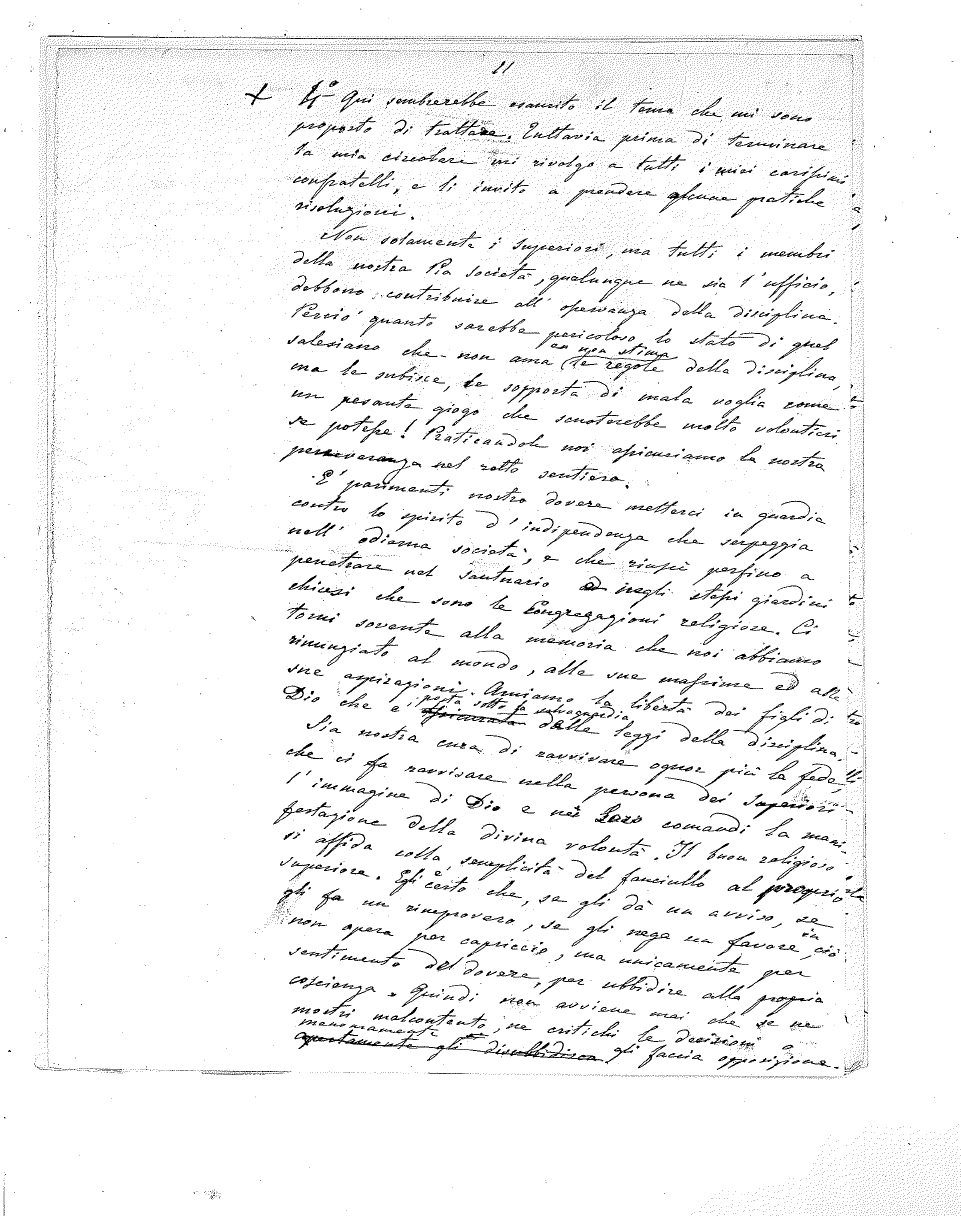 11
+ 4° Qui sembrerebbe esaurito il tema che mi sono
proposto di trattare. Tuttavia prima di terminare
la mia circolare mi rivolgo a tutti i miei carissimi
confratelli, e li invito a prendere alcune pratiche
risoluzioni.
Non solamente i superiori, ma tutti i membri
della nostra Pia società, qualunque ne sia l'ufficio,
debbono contribuire all'osservanza della disciplina.
Perciò quanto sarebbe pericoloso lo stato di quel
e non stima
salesiano che non ama le regole della disciplina,
ma le subisce, le sopporta di mala voglia come
un pesante giogo che scuoterebbe molto volontieri
se potesse! Praticandole noi assicuriamo la nostra
perseveranza nel retto sentiero.
E' parimenti nostro dovere metterci in guardia
contro lo spirito d'indipendenza che serpeggia
nell'odierna società, e che riuscì perfino a
penetrare nel santuario e negli stessi giardini
chiusi che sono le Congregazioni religiose. Ci
torni sovente alla memoria che noi abbiamo
rinunziato al mondo, alle sue massime ed alle
sue aspirazioni. Amiamo la libertà dei figli di
posta sotto la salvaguardia
Dio che è assicurata delle leggi della disciplina.
Sia nostra cura di ravvivare ognor più la fede,
che ci fa ravvisare nella persona dei Superiori
l'immagine di Dio e nei loro comandi la mani-
festazione della divina volontà. Il buon religioso
si affida colla semplicità del fanciullo al proprio
superiore. Egli è certo che, se gli dà un avviso, se
gli fa un rimprovero, se gli nega un favore, in ciò
non opera per capriccio, ma unicamente per
sentimento del dovere, per ubbidire alla propria
coscienza. Quindi non avviene mai che se ne
mostri malcontento, ne critichi le decisioni o
menomamente
apertamente gli disubbidisca gli faccia opposizione.